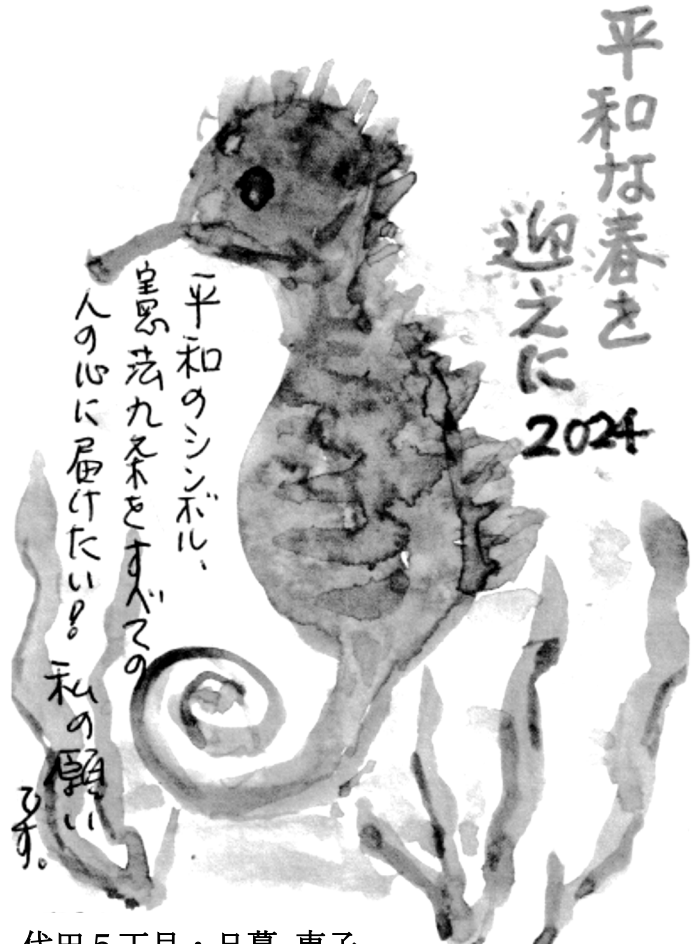 平和な春を
迎えに
2024
平和のシンボル、
憲法九条をすべての
人の心に届けたい!
私の願い
です。
代田5丁目・日暮 恵子